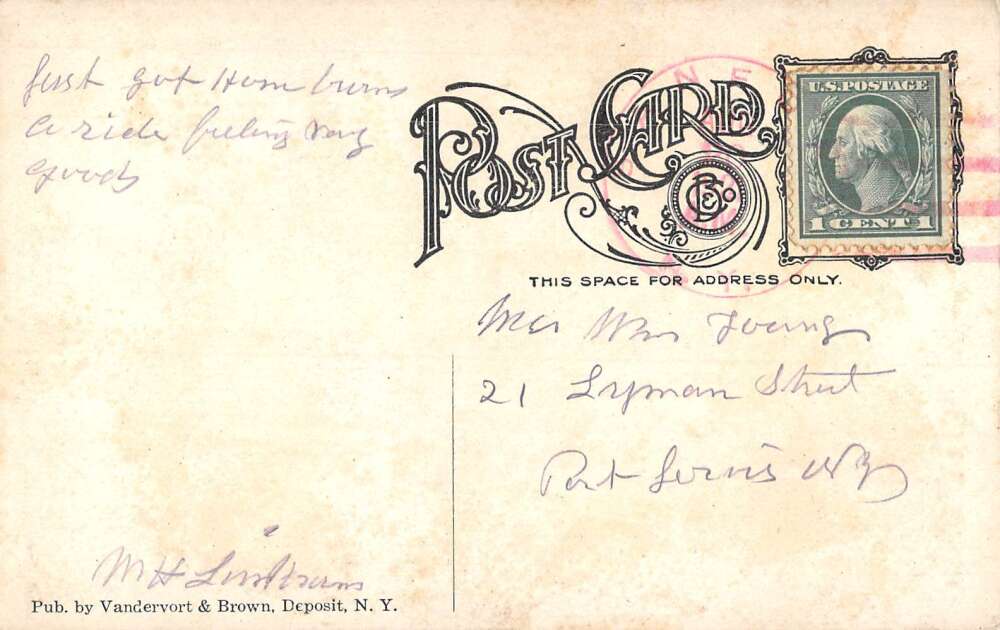 Just got Home
a ride feeling very
good
M H
Pub. by Vandervort & Brown, Deposit, N. Y.
POST CARD
THIS SPACE FOR ADDRESS ONLY.
U.S. POSTAGE
1 CENT 1
N.Y.
Mrs Wm Young
21 Lyman Street
Port Jervis NY